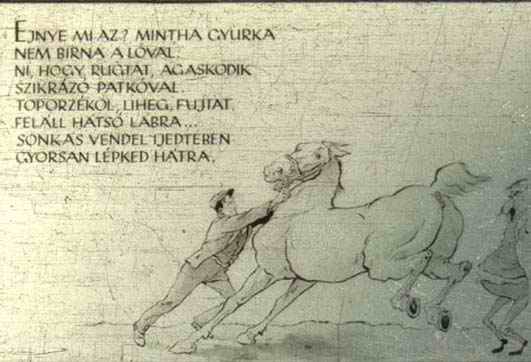 EJNYE MI AZ? MINTHA GYURKA
NEM BIRNA A LÓVAL.
NI, HOGY RUGTAT, ÁGASKODIK
SZIKRÁZÓ PATKÓVAL.
TOPORZÉKOL, LIHEG, FUJTAT,
FELÁLL HÁTSÓ LÁBRA...
SONKÁS VENDEL IJEDTÉBEN
GYORSAN LÉPKED HÁTRA.